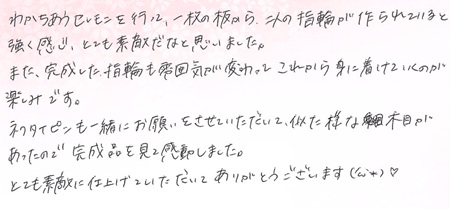 わかちあうセレモニを行い、一枚の板から、二人の指輪が作られていると
強く感じ、とても素敵だなと思いました。
また、完成した指輪も雰囲気が変わって これから身に着けていくのが
楽しみです。
ネクタイピンも一緒にお願いをさせていただいて、似た様な木目が
あったので 完成品を見て感動しました。
とても素敵に仕上げていただいて ありがとうございます(^ω^)♡